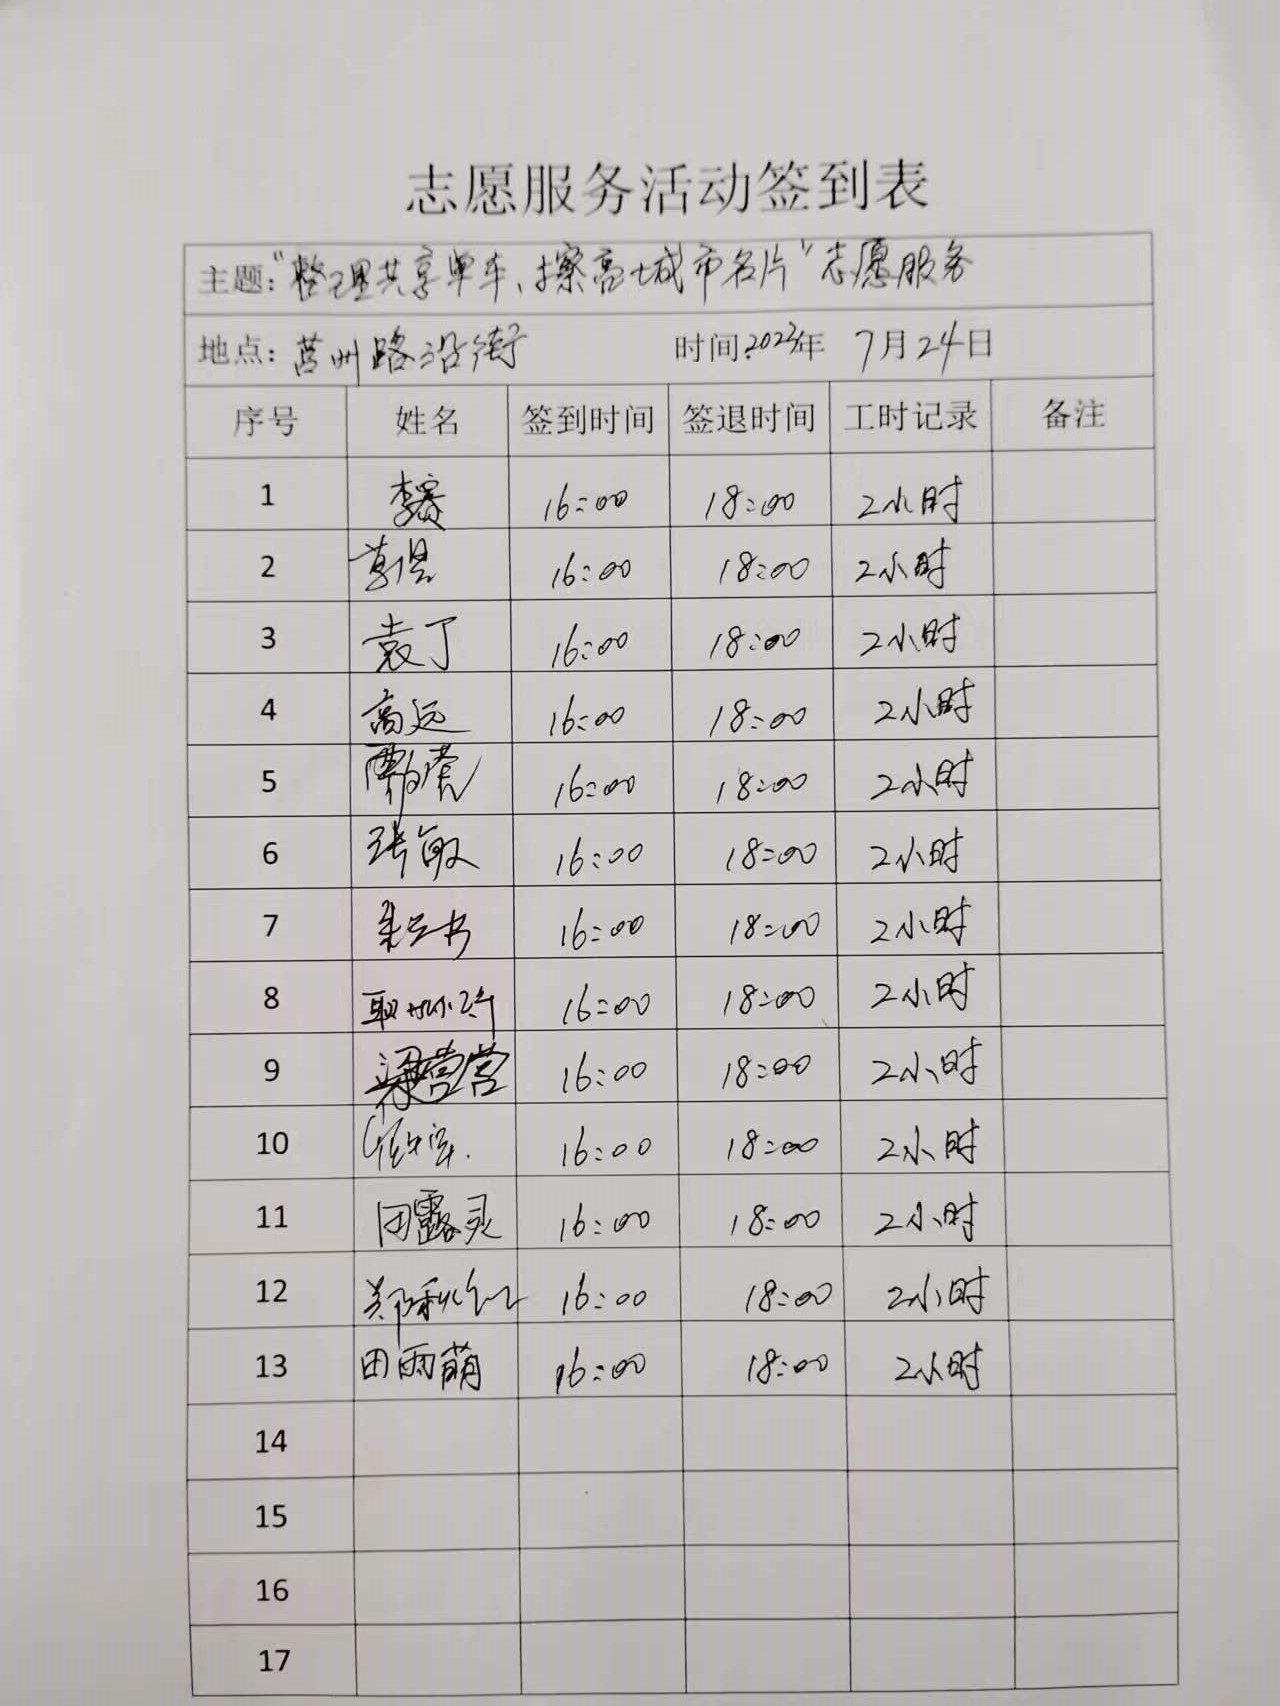 志愿服务活动签到表
主题："整理共享单车、擦亮城市名片"志愿服务
地点：莒州路沿街 时间：2023年 7月24日
序号 姓名 签到时间 签退时间 工时记录 备注
1 16:00 18:00 2小时
2 16:00 18:00 2小时
3 袁丁 16:00 18:00 2小时
4 高远 16:00 18:00 2小时
5 16:00 18:00 2小时
6 张敏 16:00 18:00 2小时
7 16:00 18:00 2小时
8 16:00 18:00 2小时
9 梁营营 16:00 18:00 2小时
10 16:00 18:00 2小时
11 田露灵 16:00 18:00 2小时
12 郑秋红 16:00 18:00 2小时
13 田雨萌 16:00 18:00 2小时
14
15
16
17